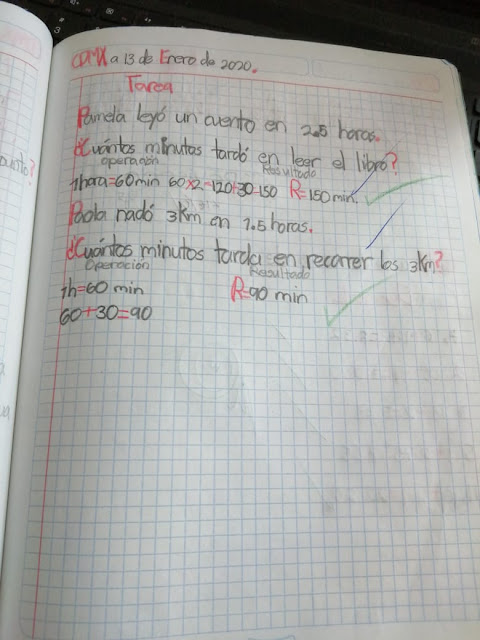 CDMX a 13 de Enero de 2020.
Tarea
Pamela leyó un cuento en 2.5 horas.
¿Cuántos minutos tardó en leer el libro?
operación Resultado
1hora=60min 60x2=120+30=150 R=150min.
Paola nadó 3Km en 1.5 horas.
¿Cuántos minutos tarda en recorrer los 3Km?
Operación Resultado
1h=60 min R=90 min
60+30=90